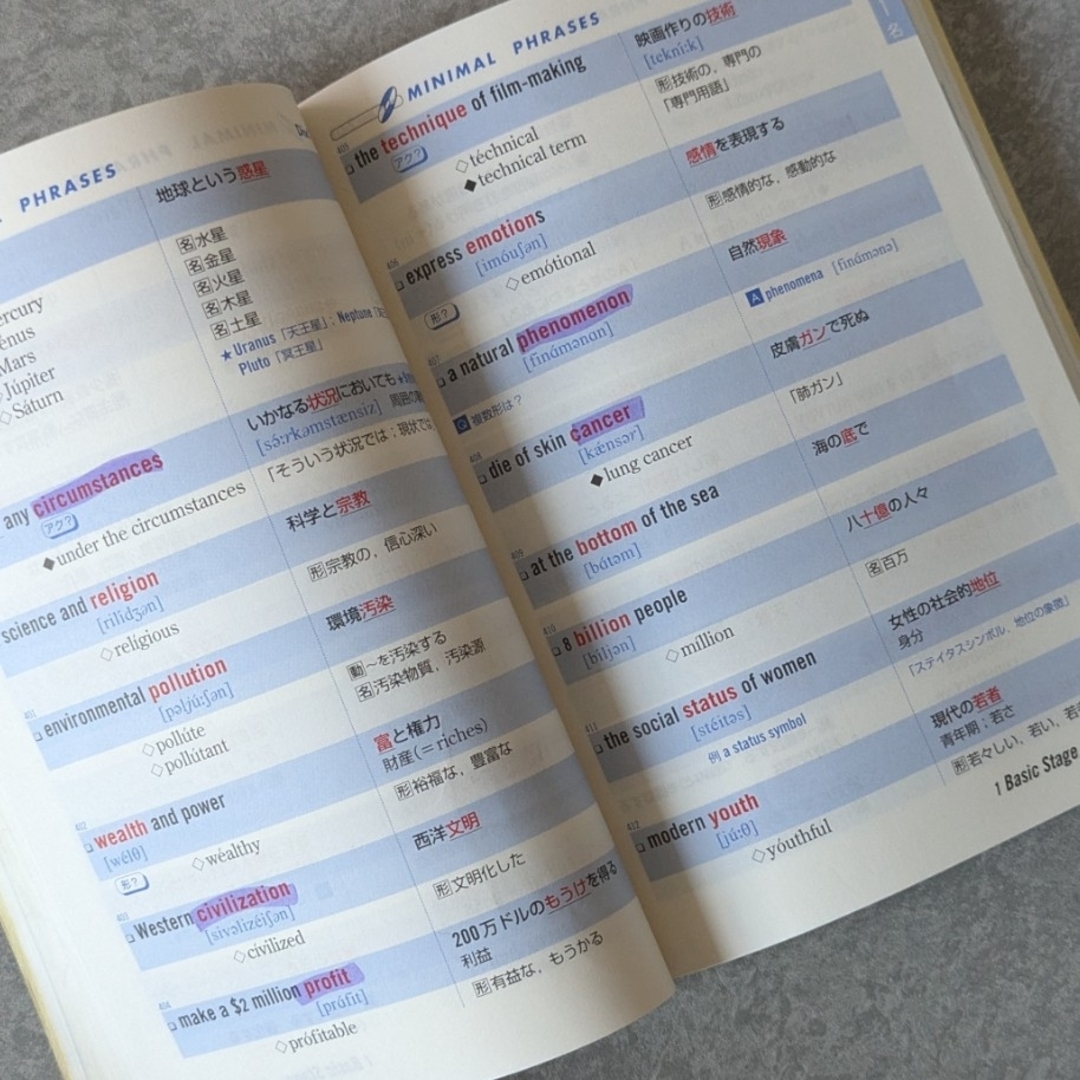 PHRASES
地球という惑星
ercury
名水星
énus
名金星
Mars
名火星
Júpiter
名木星
◇Sáturn
名土星
★Uranus「天王星」; Neptune
Pluto「冥王星」
any circumstances
いかなる状況においても
アク?
[sə́ːrkəmstænsiz]
◆under the circumstances
「そういう状況では;現状では
science and religion
科学と宗教
[rilídʒən]
◇religious
形宗教の,信心深い
401
environmental pollution
環境汚染
[pəljúːʃən]
◇pollúte
動~を汚染する
◇pollútant
名汚染物質,汚染源
402
wealth and power
富と権力
[wélθ]
財産(=riches)
形?
◇wéalthy
形裕福な,豊富な
403
Western civilization
西洋文明
[sivəlizéiʃən]
◇civilized
形文明化した
404
make a $2 million profit
200万ドルのもうけを得る
[práfit]
利益
◇prófitable
形有益な,もうかる
MINIMAL PHRASES
405
the technique of film-making
映画作りの技術
アク?
[tekníːk]
◇téchnical
形技術の,専門の
◆technical term
「専門用語」
406
express emotions
感情を表現する
[imóuʃən]
形?
◇emótional
形感情的な,感動的な
407
a natural phenomenon
自然現象
[finάmənɑn]
Q 複数形は?
A phenomena [finάmənə]
408
die of skin cancer
皮膚ガンで死ぬ
[kǽnsər]
◆lung cancer
「肺ガン」
409
at the bottom of the sea
海の底で
[bάtəm]
410
8 billion people
八十億の人々
[bíljən]
◇million
名百万
411
the social status of women
女性の社会的地位
[stéitəs]
身分
例 a status symbol
「ステイタスシンボル,地位の象徴」
412
modern youth
現代の若者
[júːθ]
青年期;若さ
◇yóuthful
形若々しい,若い,
1 Basic Stage
1
名